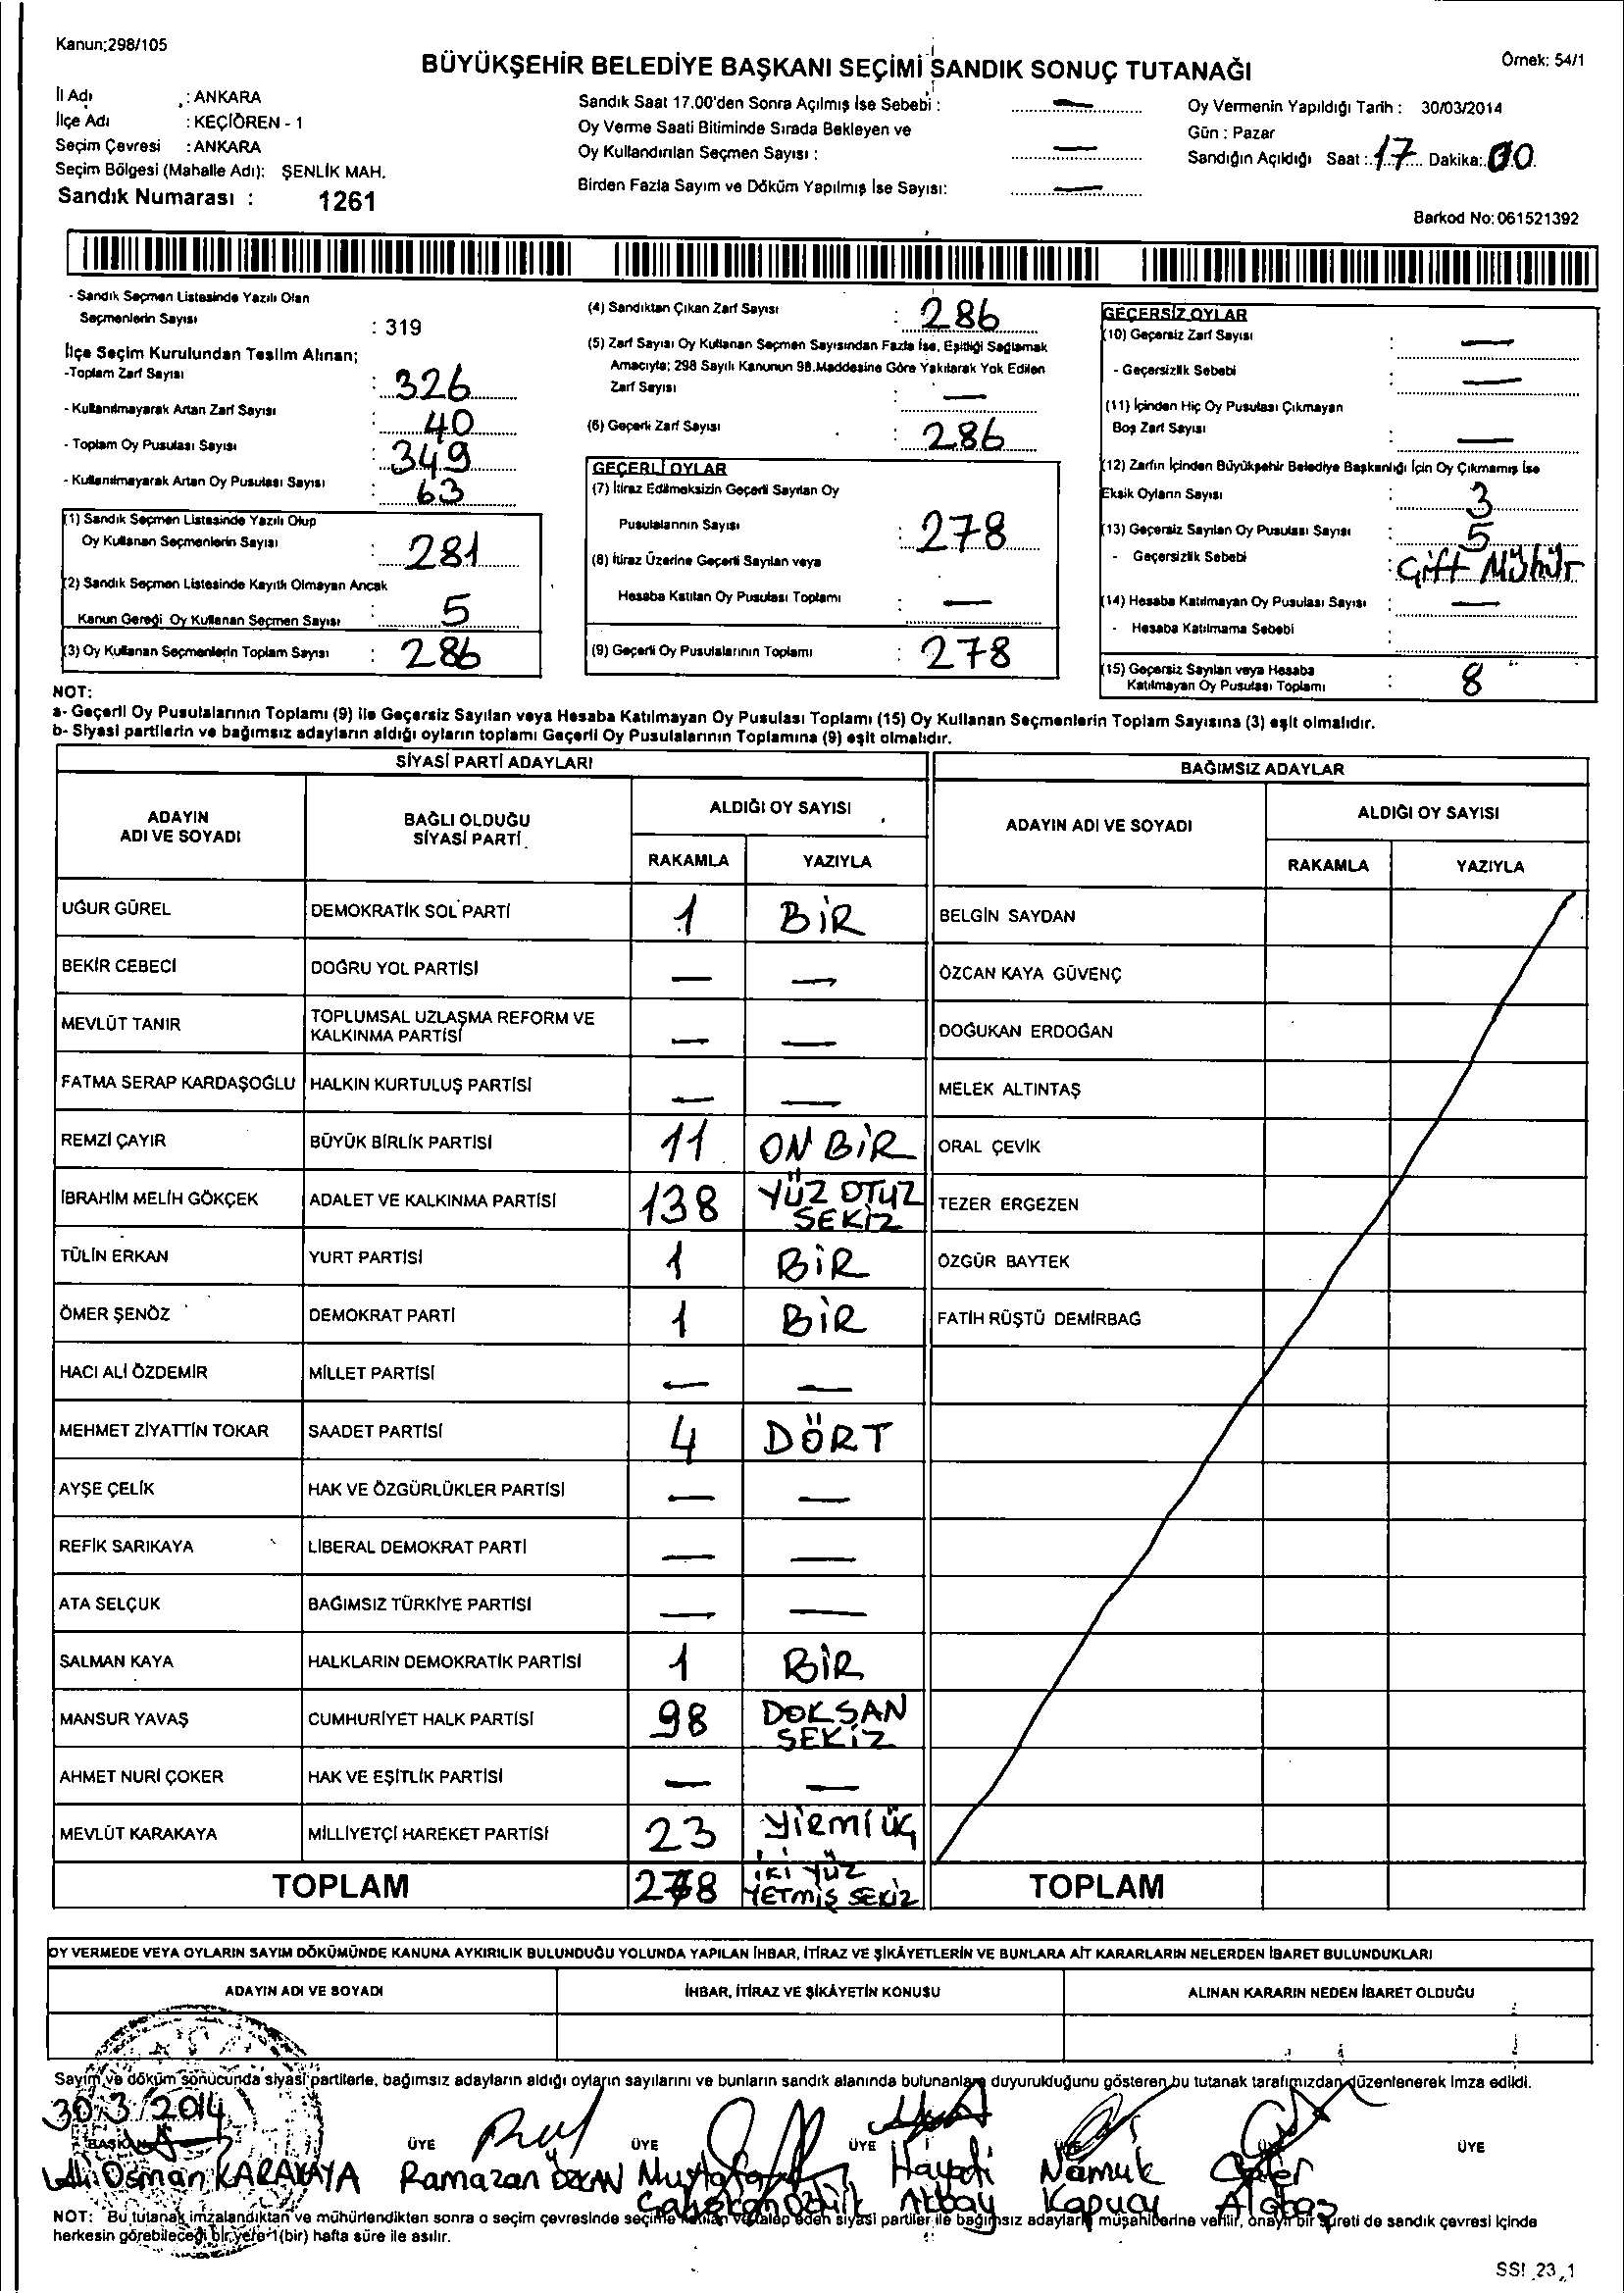 Kanun;298/105
BÜYÜKŞEHİR BELEDİYE BAŞKANI SEÇİMİ SANDIK SONUÇ TUTANAĞI
Örnek: 54/1
İl Adı : ANKARA
İlçe Adı : KEÇİÖREN - 1
Seçim Çevresi : ANKARA
Seçim Bölgesi (Mahalle Adı): ŞENLİK MAH.
Sandık Numarası : 1261
Sandık Saat 17.00'den Sonra Açılmış İse Sebebi : —
Oy Verme Saati Bitiminde Sırada Bekleyen ve
Oy Kullandırılan Seçmen Sayısı : —
Birden Fazla Sayım ve Döküm Yapılmış İse Sayısı: —
Oy Vermenin Yapıldığı Tarih : 30/03/2014
Gün : Pazar
Sandığın Açıldığı Saat : 17 Dakika: 00
Barkod No: 061521392
- Sandık Seçmen Listesinde Yazılı Olan
Seçmenlerin Sayısı : 319
İlçe Seçim Kurulundan Teslim Alınan;
-Toplam Zarf Sayısı : 326
- Kullanılmayarak Artan Zarf Sayısı : 40
- Toplam Oy Pusulası Sayısı : 349
- Kullanılmayarak Artan Oy Pusulası Sayısı : 63
(1) Sandık Seçmen Listesinde Yazılı Olup
Oy Kullanan Seçmenlerin Sayısı : 281
(2) Sandık Seçmen Listesinde Kayıtlı Olmayan Ancak
Kanun Gereği Oy Kullanan Seçmen Sayısı : 5
(3) Oy Kullanan Seçmenlerin Toplam Sayısı : 286
(4) Sandıktan Çıkan Zarf Sayısı : 286
(5) Zarf Sayısı Oy Kullanan Seçmen Sayısından Fazla İse, Eşitliği Sağlamak
Amacıyla; 298 Sayılı Kanunun 98.Maddesine Göre Yakılarak Yok Edilen
Zarf Sayısı : —
(6) Geçerli Zarf Sayısı : 286
GEÇERLİ OYLAR
(7) İtiraz Edilmeksizin Geçerli Sayılan Oy
Pusulalarının Sayısı : 278
(8) İtiraz Üzerine Geçerli Sayılan veya
Hesaba Katılan Oy Pusulası Toplamı : —
(9) Geçerli Oy Pusulalarının Toplamı : 278
GEÇERSİZ OYLAR
(10) Geçersiz Zarf Sayısı : —
- Geçersizlik Sebebi : —
(11) İçinden Hiç Oy Pusulası Çıkmayan
Boş Zarf Sayısı : —
(12) Zarfın İçinden Büyükşehir Belediye Başkanlığı İçin Oy Çıkmamış İse
Eksik Oyların Sayısı : 3
(13) Geçersiz Sayılan Oy Pusulası Sayısı : 5
- Geçersizlik Sebebi : Çift Mühür
(14) Hesaba Katılmayan Oy Pusulası Sayısı : —
- Hesaba Katılmama Sebebi :
(15) Geçersiz Sayılan veya Hesaba
Katılmayan Oy Pusulası Toplamı : 8
NOT:
a- Geçerli Oy Pusulalarının Toplamı (9) ile Geçersiz Sayılan veya Hesaba Katılmayan Oy Pusulası Toplamı (15) Oy Kullanan Seçmenlerin Toplam Sayısına (3) eşit olmalıdır.
b- Siyasi partilerin ve bağımsız adayların aldığı oyların toplamı Geçerli Oy Pusulalarının Toplamına (9) eşit olmalıdır.
SİYASİ PARTİ ADAYLARI
BAĞIMSIZ ADAYLAR
ADAYIN
ADI VE SOYADI
BAĞLI OLDUĞU
SİYASİ PARTİ
ALDIĞI OY SAYISI
RAKAMLA YAZIYLA
ADAYIN ADI VE SOYADI
ALDIĞI OY SAYISI
RAKAMLA YAZIYLA
UĞUR GÜREL DEMOKRATİK SOL PARTİ 1 BİR BELGİN SAYDAN
BEKİR CEBECİ DOĞRU YOL PARTİSİ — — ÖZCAN KAYA GÜVENÇ
MEVLÜT TANIR TOPLUMSAL UZLAŞMA REFORM VE
KALKINMA PARTİSİ — — DOĞUKAN ERDOĞAN
FATMA SERAP KARDAŞOĞLU HALKIN KURTULUŞ PARTİSİ — — MELEK ALTINTAŞ
REMZİ ÇAYIR BÜYÜK BİRLİK PARTİSİ 11 ON BİR ORAL ÇEVİK
İBRAHİM MELİH GÖKÇEK ADALET VE KALKINMA PARTİSİ 138 YÜZ OTUZ
SEKİZ TEZER ERGEZEN
TÜLİN ERKAN YURT PARTİSİ 1 BİR ÖZGÜR BAYTEK
ÖMER ŞENÖZ DEMOKRAT PARTİ 1 BİR FATİH RÜŞTÜ DEMİRBAĞ
HACI ALİ ÖZDEMİR MİLLET PARTİSİ — —
MEHMET ZİYATTİN TOKAR SAADET PARTİSİ 4 DÖRT
AYŞE ÇELİK HAK VE ÖZGÜRLÜKLER PARTİSİ — —
REFİK SARIKAYA LİBERAL DEMOKRAT PARTİ — —
ATA SELÇUK BAĞIMSIZ TÜRKİYE PARTİSİ — —
SALMAN KAYA HALKLARIN DEMOKRATİK PARTİSİ 1 BİR
MANSUR YAVAŞ CUMHURİYET HALK PARTİSİ 98 DOKSAN
SEKİZ
AHMET NURİ ÇOKER HAK VE EŞİTLİK PARTİSİ — —
MEVLÜT KARAKAYA MİLLİYETÇİ HAREKET PARTİSİ 23 YİRMİ ÜÇ
TOPLAM 278 İKİ YÜZ
YETMİŞ SEKİZ TOPLAM
OY VERMEDE VEYA OYLARIN SAYIM DÖKÜMÜNDE KANUNA AYKIRILIK BULUNDUĞU YOLUNDA YAPILAN İHBAR, İTİRAZ VE ŞİKÂYETLERİN VE BUNLARA AİT KARARLARIN NELERDEN İBARET BULUNDUKLARI
ADAYIN ADI VE SOYADI İHBAR, İTİRAZ VE ŞİKÂYETİN KONUSU ALINAN KARARIN NEDEN İBARET OLDUĞU
Sayım ve döküm sonucunda siyasi partilerle, bağımsız adayların aldığı oyların sayılarını ve bunların sandık alanında bulunanlara duyurulduğunu gösteren bu tutanak tarafımızdan düzenlenerek imza edildi.
30/3/2014
BAŞKAN ÜYE ÜYE ÜYE ÜYE
Ali Osman KARAKAYA Ramazan ÖZCAN Mustafa Hayati Namuk Cafer
Akbay Kapucu Alabaş
NOT: Bu tutanak imzalandıktan ve mühürlendikten sonra o seçim çevresinde seçime katılan ve talep eden siyasi partiler ile bağımsız adayların müşahitlerine verilir, onaylı bir sureti de sandık çevresi içinde
herkesin görebileceği bir yere 1(bir) hafta süre ile asılır.
SSI_23_1